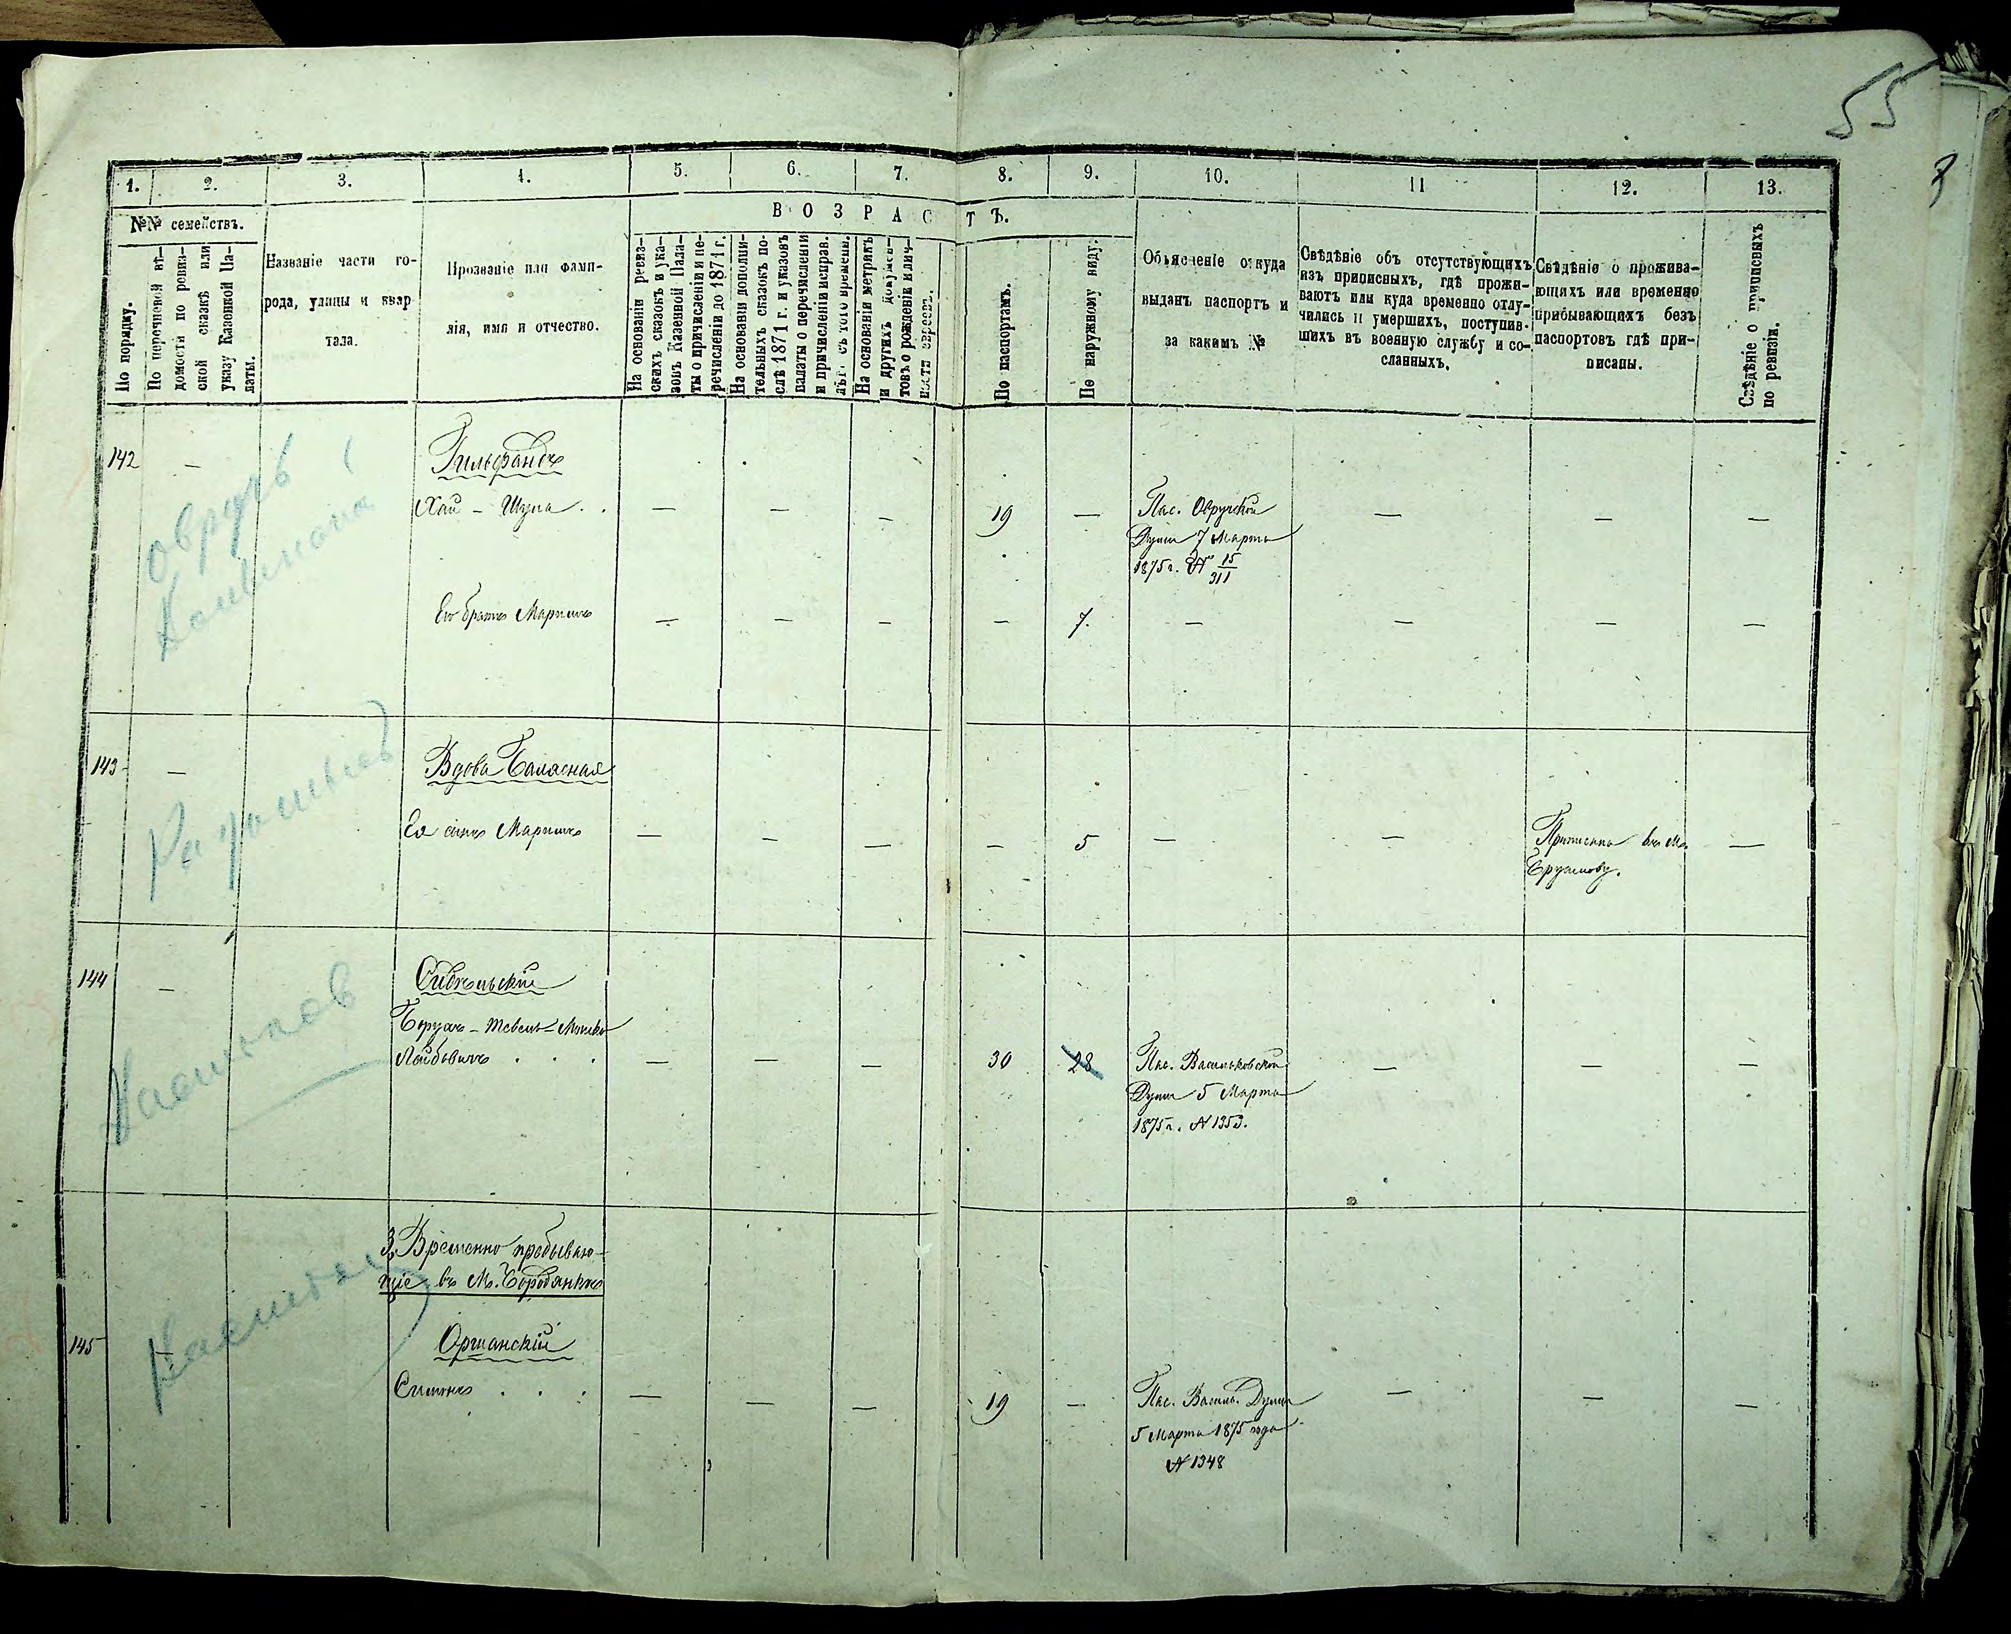 55
1.
2.
3.
4.
5.
6.
7.
8.
9.
10.
11
12.
13.
№№ семействъ.
По порядку.
По перечневой вѣ-
домости по ревиз-
ской сказкѣ или
указу Казенной Па-
латы.
Названіе части го-
рода, улицы и квар
тала.
Прозваніе или фами-
лія, имя и отчество.
ВОЗРАСТЪ.
На основаніи ревиз-
скихъ сказокъ и ука-
зовъ Казенной Пала-
ты о причисленіи и пе-
речисленіи до 1871 г.
На основаніи дополни-
тельныхъ сказокъ по-
слѣ 1871 г. и указовъ
палаты о перечисленіи
и причисленіи исправ.
лѣтъ съ того времени.
На основаніи метрикъ
и другихъ докумен-
товъ о рожденіи и лич-
ности евреевъ.
По паспортамъ.
По наружному виду.
Объясненіе откуда
выданъ паспортъ и
за какимъ №
Свѣдѣніе об отсутствующихъ
изъ приписныхъ, гдѣ прожи-
ваютъ или куда временно отлу-
чились и умершихъ, поступив-
шихъ въ военную службу и со-
сланныхъ.
Свѣдѣніе о прожива-
ющихъ или временно
прибывающихъ безъ
паспортовъ гдѣ при-
писаны.
Свѣдѣніе о приписныхъ
по ревизіи.
142 — Гильфандъ
Хаи - Шула . . — — — 19 — Пас. Овручской — — —
Думы 7 Марта
1875 г. № 15/311
Его братъ Маріимъ — — — — 7. — — — —
Овручъ
143 — Вдова Балясная
Ея сынъ Маріимъ — — — — 5 — — Приписанъ въ М. —
Брусилову.
Радомысл
144 — Сивкильскій
Борухъ - Тевель - Мошко
Лейбовичъ . . . — — — 30 28 Пас. Васильковской — — —
Думы 5 Марта
1875 г. № 1353.
Васильков
3, Временно пребываю-
щіе въ М. Бородянкѣ
145 — Оршанскій
Симонъ . . . — — — 19 — Пас. Василь. Думы — — —
5 Марта 1875 года
№ 1348
Васильков